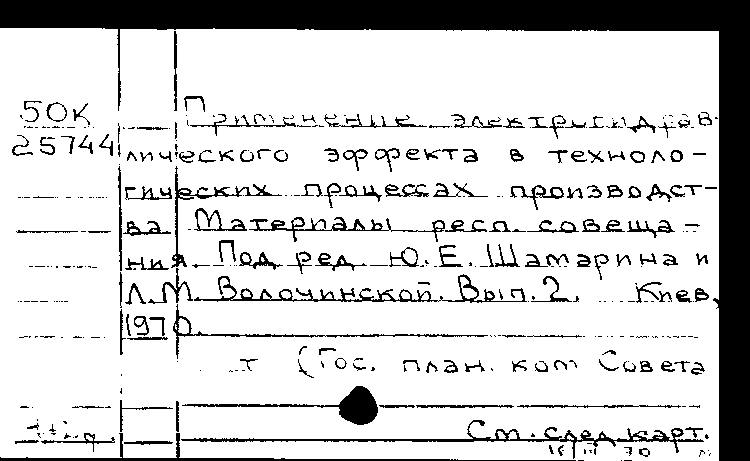 50К
25744
Применение электрогидрав-
лического эффекта в техноло-
гических процессах производст-
ва Материалы респ. совеща-
ния. Под ред. Ю. Е. Шамарина и
Л. М. Волочинской. Вып. 2. Киев,
1970.
т (Гос. план. ком Совета
См. след. карт.